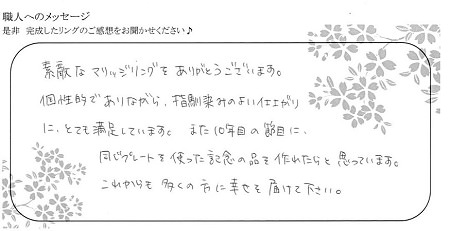 職人へのメッセージ
是非 完成したリングのご感想をお聞かせください♪
素敵なマリッジリングをありがとうございます。
個性的でありながら、指馴染みのよい仕上がり
に、とても満足しています。 また10年目の節目に、
同じプレートを使った記念の品を作れたらと思っています。
これからも多くの方に幸せを届けて下さい。